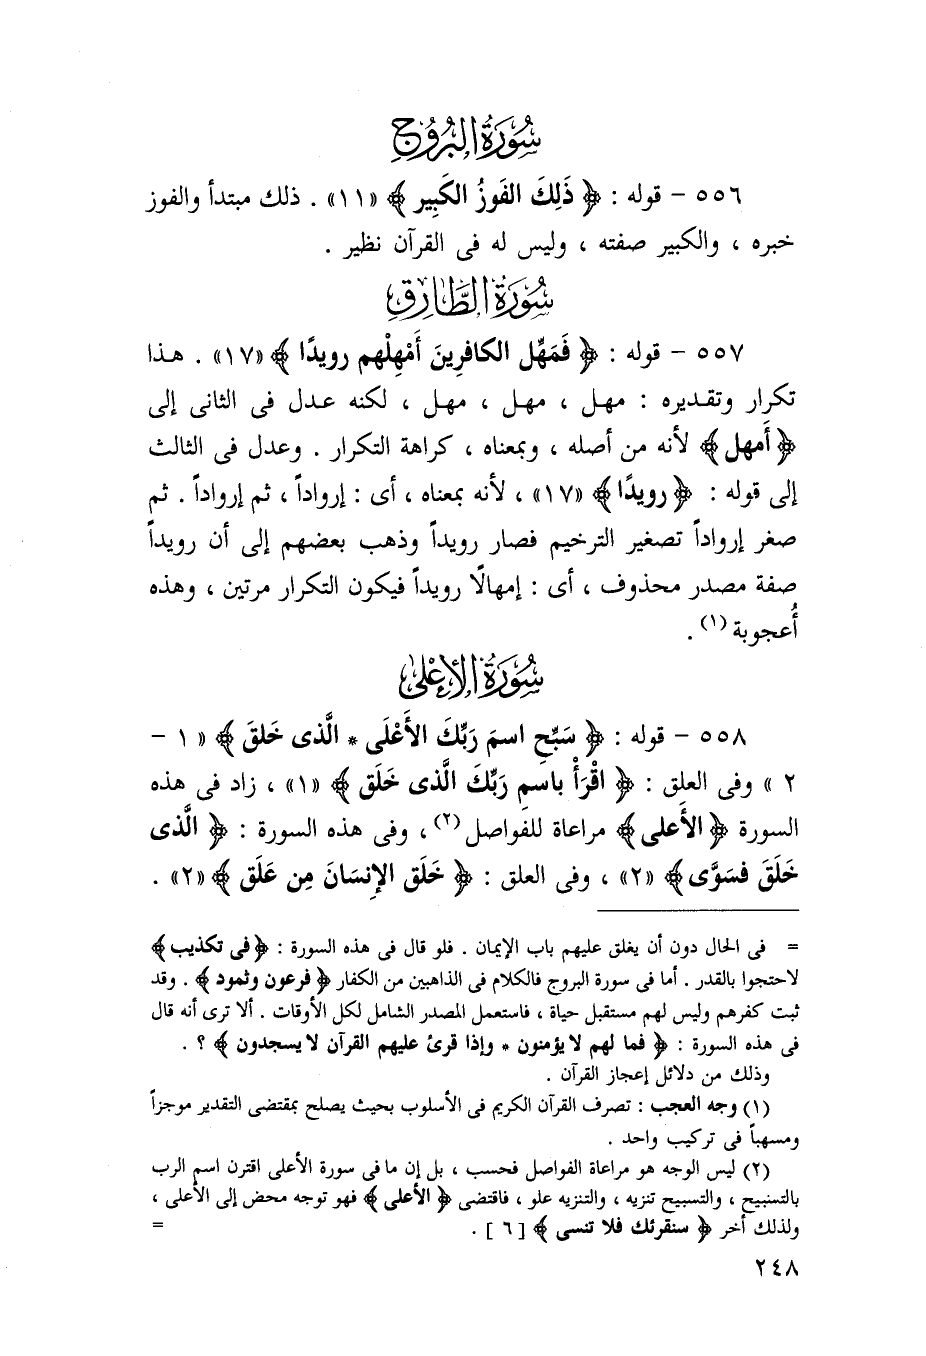 سُورَةُ البُرُوجِ
٥٥٦ - قوله : ﴿ ذَلِكَ الفَوزُ الكَبِير ﴾ «١١» . ذلك مبتدأ والفوز
خبره ، والكبير صفته ، وليس له فى القرآن نظير .
سُورَةُ الطَّارِقِ
٥٥٧ - قوله : ﴿ فَمَهِّل الكافِرِينَ أَمْهِلْهم رويدًا ﴾ «١٧» . هذا
تكرار وتقديره : مهل ، مهل ، مهل ، لكنه عدل فى الثانى إلى
﴿ أَمهل ﴾ لأنه من أصله ، وبمعناه ، كراهة التكرار . وعدل فى الثالث
إلى قوله : ﴿ رويدًا ﴾ «١٧» ، لأنه بمعناه ، أى : إرواداً ، ثم إرواداً . ثم
صغر إرواداً تصغير الترخيم فصار رويداً وذهب بعضهم إلى أن رويداً
صفة مصدر محذوف ، أى : إمهالًا رويداً فيكون التكرار مرتين ، وهذه
أُعجوبة (١) .
سُورَةُ الأَعْلَىٰ
٥٥٨ - قوله : ﴿ سَبِّحِ اسمَ رَبِّكَ الأَعْلَى * الَّذى خَلقَ ﴾ « ١ -
٢ » وفى العلق : ﴿ اقْرَأْ باسمِ رَبِّكَ الَّذى خَلَق ﴾ «١» ، زاد فى هذه
السورة ﴿ الأَعلى ﴾ مراعاة للفواصل (٢) ، وفى هذه السورة : ﴿ الَّذى
خَلَقَ فسَوَّى ﴾ «٢» ، وفى العلق : ﴿ خَلَق الإِنسَانَ مِن عَلَق ﴾ «٢» .
= فى الحال دون أن يغلق عليهم باب الإيمان . فلو قال فى هذه السورة : ﴿ فى تكذيب ﴾
لاحتجوا بالقدر . أما فى سورة البروج فالكلام فى الذاهبين من الكفار ﴿ فرعون وثمود ﴾ . وقد
ثبت كفرهم وليس لهم مستقبل حياة ، فاستعمل المصدر الشامل لكل الأوقات . ألا ترى أنه قال
فى هذه السورة : ﴿ فما لهم لا يؤمنون * وإذا قرئ عليهم القرآن لا يسجدون ﴾ ؟ .
وذلك من دلائل إعجاز القرآن .
(١) وجه العجب : تصرف القرآن الكريم فى الأسلوب بحيث يصلح بمقتضى التقدير موجزاً
ومسهباً فى تركيب واحد .
(٢) ليس الوجه هو مراعاة الفواصل فحسب ، بل إن ما فى سورة الأعلى اقترن اسم الرب
بالتسبيح ، والتسبيح تنزيه ، والتنزيه علو ، فاقتضى ﴿ الأعلى ﴾ فهو توجه محض إلى الأعلى ،
ولذلك أخر ﴿ سنقرئك فلا تنسى ﴾ [ ٦ ] . =
٢٤٨